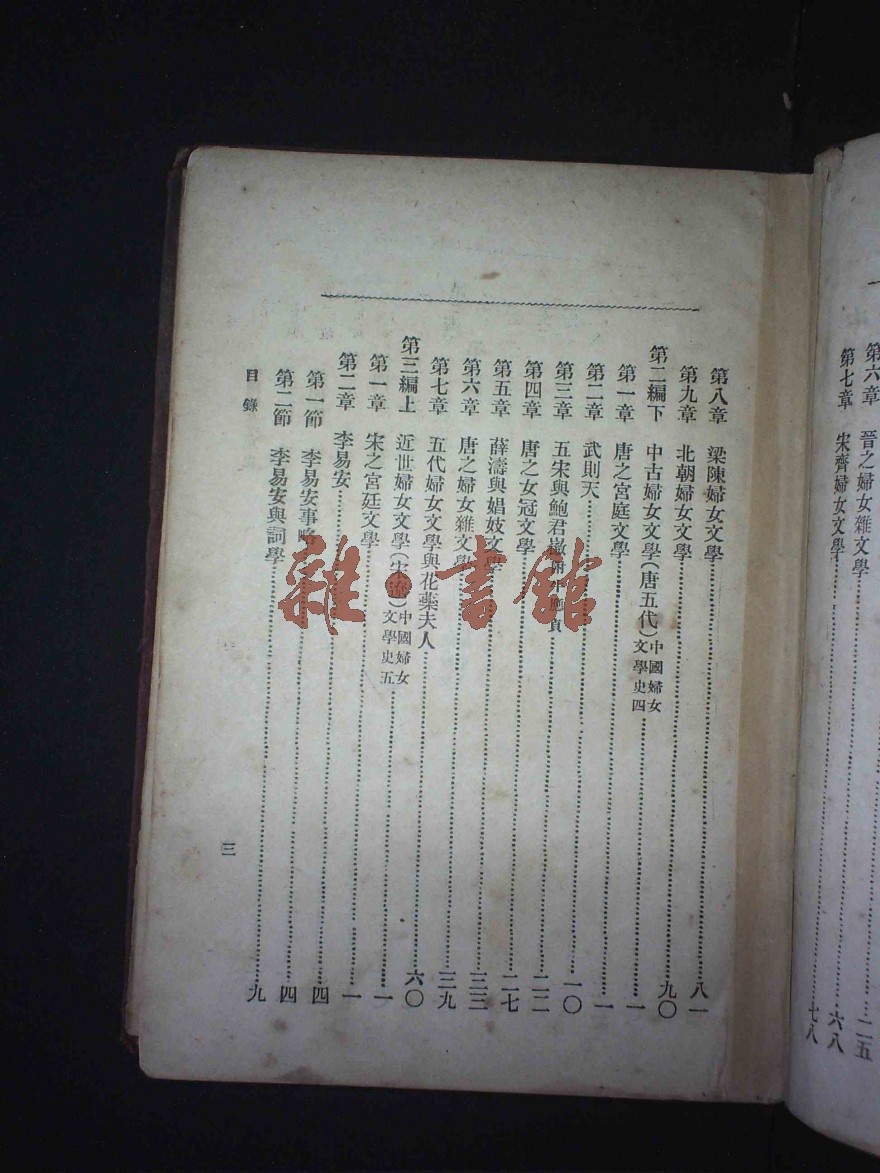 第六章　晉之婦女雜文學……六八
第七章　宋齊婦女文學……七八
二五
第八章　梁陳婦女文學……八一
第九章　北朝婦女文學……九〇
第二編下　中古婦女文學(唐五代)中國婦女文學史四……一
第一章　唐之宮庭文學……一
第二章　武則天……一〇
第三章　五宋與鮑君徽附牛應貞……二二
第四章　唐之女冠文學……二七
第五章　薛濤與娼妓文學……三三
第六章　唐之婦女雜文學……三九
第七章　五代婦女文學與花蘂夫人……六〇
第三編上　近世婦女文學(宋遼)中國婦女文學史五……一
第一章　宋之宮廷文學……一
第二章　李易安……四
第一節　李易安事略……四
第二節　李易安與詞學……九
目錄
三
雜·書館